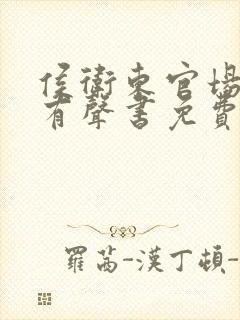 侯衛東官場
有聲書免費
羅茜-漢丁頓-